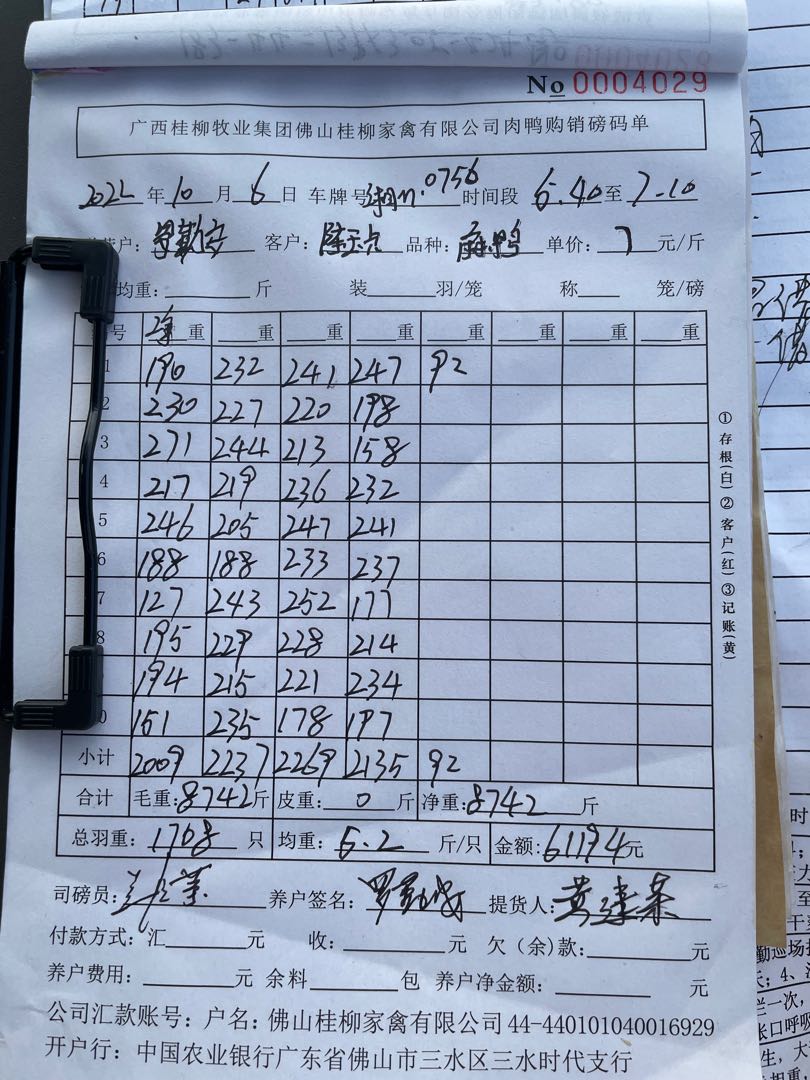 No 0004029
广西桂柳牧业集团佛山桂柳家禽有限公司肉鸭购销磅码单
2022年10月6日 车牌号 0756 时间段 6.40至7.10
户: 客户: 品种:麻鸭 单价:7元/斤
均重: 斤 装 羽/笼 称 笼/磅
号 净重 重 重 重 重 重 重 重
1 190 232 241 247 92
2 230 227 220 198
3 271 244 213 158
4 217 219 236 232
5 246 205 247 241
6 188 188 233 237
7 127 243 252 177
8 195 229 228 214
194 215 221 234
0 151 235 178 197
小计 2009 2237 2269 2135 92
合计 毛重:8742斤 皮重:0斤 净重:8742斤
总羽重:1708只 均重:5.2斤/只 金额:61194元
司磅员: 养户签名: 提货人:黄建荣
付款方式:汇 元 收: 元 欠(余)款: 元
养户费用: 元 余料 包 养户净金额: 元
公司汇款账号:户名:佛山桂柳家禽有限公司44-440101040016929
开户行:中国农业银行广东省佛山市三水区三水时代支行
①存根(白)②客户(红)③记账(黄)